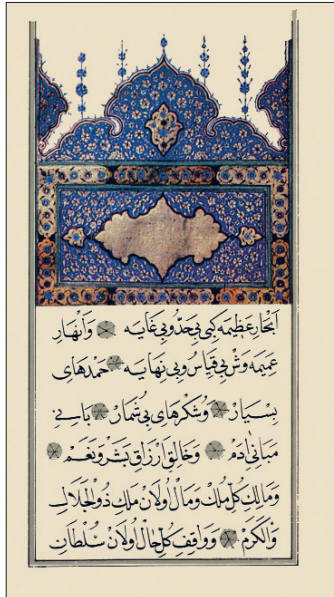 اَبْحَارِ عَظِیمَه كِبِی بِی حَدّ وُ بِی غَایَه وَاَنْهَارِ
عَمِیمَه وَشْ بِی قِیَاس وُ بِی نِهَایَه حَمْدهَاىِ
بِسْیَارْ وُشُكْرهَاىِ بِی شُمَارْ بَانِیِ
مَبَانِیِ اٰدَمْ وَخَالِقِ اَرْزَاقِ بَشَرْ وَنَعَمْ
وَمَالِكِ كُلِّ مُلْكْ وَمَالْ اُولَانْ مَلِكِ ذُو الْجَلَالِ
وَالْكَرَمْ وَوَاقِفِ كُلِّ حَالْ اُولَانْ سُلْطَانِ